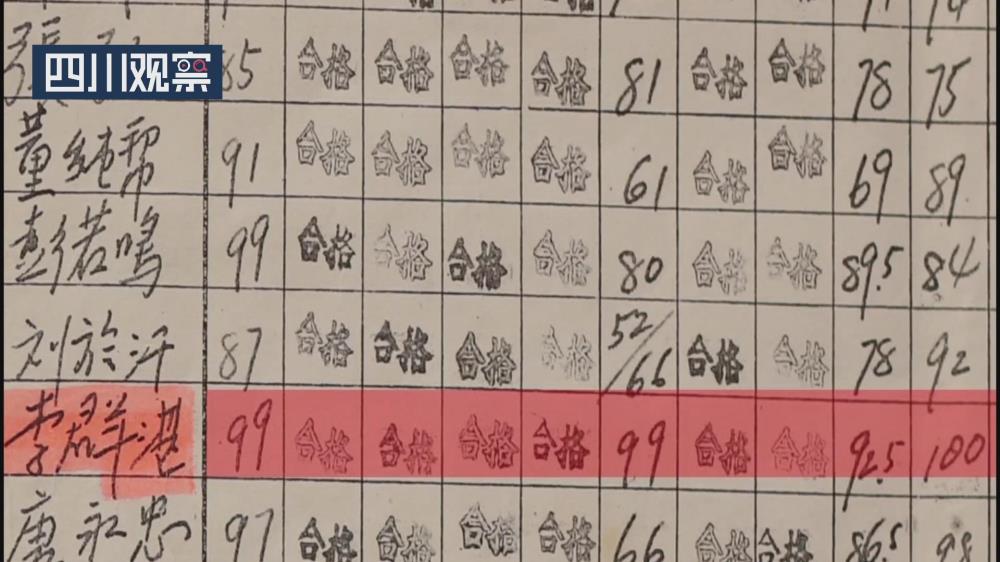 四川观察
85 合格 合格 合格 合格 81 合格 合格 78 75
董纯 91 合格 合格 合格 合格 61 合格 合格 69 89
彭若鸣 99 合格 合格 合格 合格 80 合格 合格 89.5 84
刘於汗 87 合格 合格 合格 合格 52/66 合格 合格 78 92
李群湛 99 合格 合格 合格 合格 99 合格 合格 92.5 100
永忠 97 合格 合格 合格 合格 66 合格 合格 86.5 98